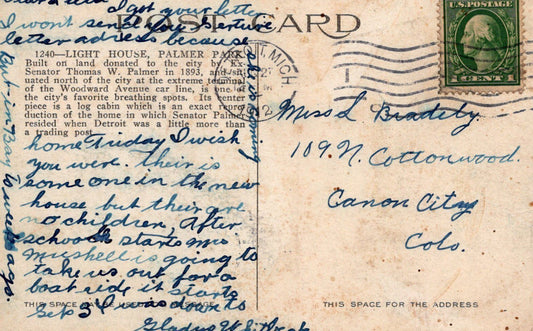 I got your letter
I won't send you Gertrude
letter address because
POST CARD
1240—LIGHT HOUSE, PALMER PARK
Built on land donated to the city by Ex-
Senator Thomas W. Palmer in 1893, and sit-
uated north of the city at the extreme terminal
of the Woodward Avenue car line, is one
the city's favorite breathing spots. Its center
piece is a log cabin which is an exact repro-
duction of the home in which Senator Palmer
resided when Detroit was a little more than
a trading post.
home Friday I wish
you were. Their is
some one in the new
house but their are
no children. After
school starts Mrs
is going to
take us out for a
boat ride it starts
Sep 3 I was down to
THIS SPACE
Gladys
ago.
MICH
1
U.S. POSTAGE
1 CENT 1
Miss L Bradely
109 N. Cottonwood.
Canon City
Colo.
THIS SPACE FOR THE ADDRESS